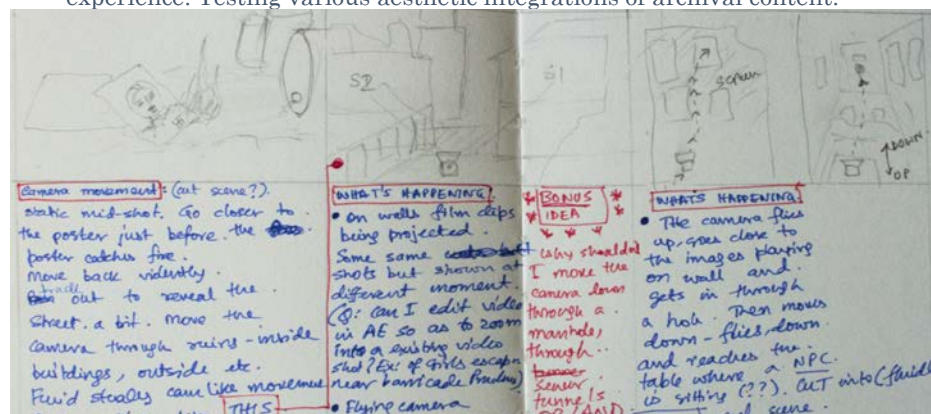 experience. Testing various aesthetic integrations of archival content.
S2
S1
screen
DOWN
UP
Camera movement: (cut scene?).
static mid-shot. Go closer to
the poster just before the
poster catches fire.
Move back violently.
track out to reveal the
street a bit. Move the
camera through ruins - inside
buildings, outside etc.
Fluid steady cam like movement
THIS
WHAT'S HAPPENING:
• On walls film clips
being projected.
Some same
shots but shown at
different moment.
(Q: Can I edit video
in AE so as to zoom
into a existing video
shot? Ex: of Girls escaping
near barricade
• Flying camera
BONUS
IDEA
why shouldn't
I move the
camera down
through a
manhole,
through
sewer
tunnels
WHAT'S HAPPENING:
• The camera flies
up, goes close to
the images playing
on wall and
gets in through
a hole. Then moves
down - flies down
and reaches the
table where a NPC
is sitting (??). CUT into (fluid
scene